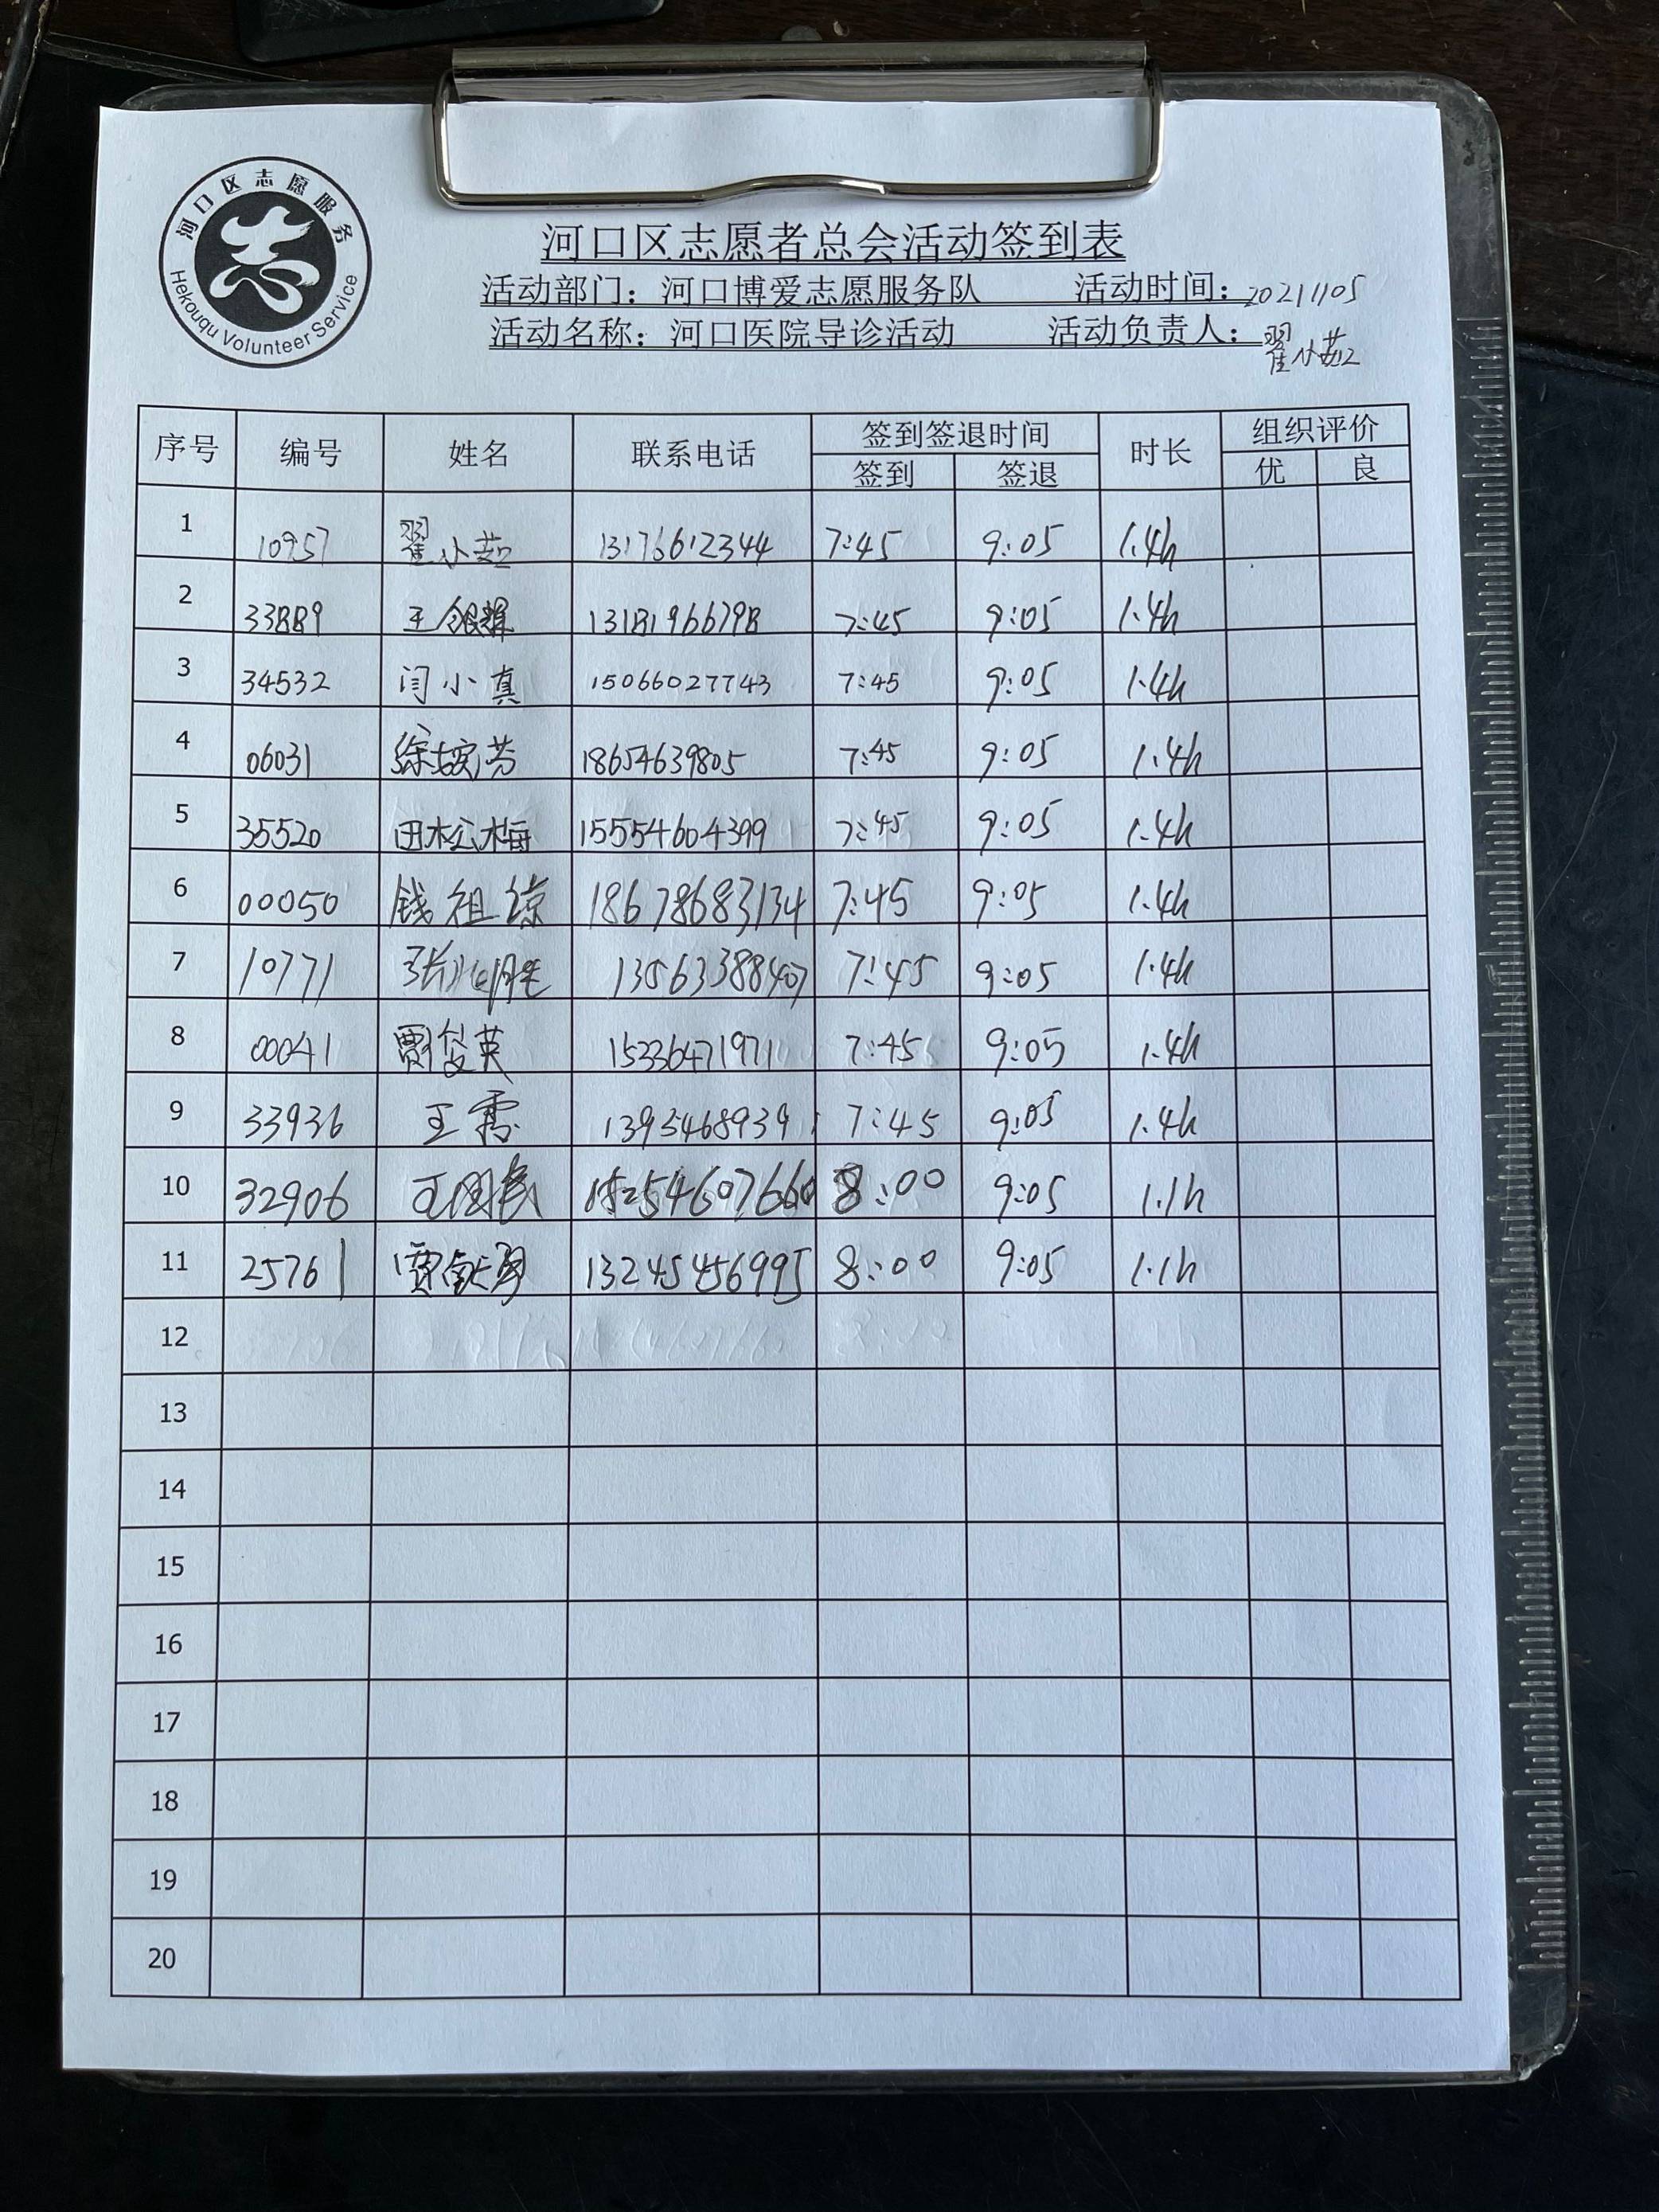 河口区志愿服务
Hekouqu Volunteer Service
河口区志愿者总会活动签到表
活动部门：河口博爱志愿服务队 活动时间：20211105
活动名称：河口医院导诊活动 活动负责人：翟小茹
序号 编号 姓名 联系电话 签到签退时间 时长 组织评价
签到 签退 优 良
1 10957 翟小茹 13176612344 7:45 9:05 1.4h
2 33889 王银辉 13181966798 7:45 9:05 1.4h
3 34532 闫小真 15066027743 7:45 9:05 1.4h
4 06031 徐 芳 18654639805 7:45 9:05 1.4h
5 35520 田松梅 15554604399 7:45 9:05 1.4h
6 00050 钱祖琼 18678683134 7:45 9:05 1.4h
7 10771 张 13563388407 7:45 9:05 1.4h
8 00041 贾俊英 15336471971 7:45 9:05 1.4h
9 33936 王霞 1395468939 7:45 9:05 1.4h
10 32906 王国民 15254607660 8:00 9:05 1.1h
11 25761 贾 13245456995 8:00 9:05 1.1h
12
13
14
15
16
17
18
19
20